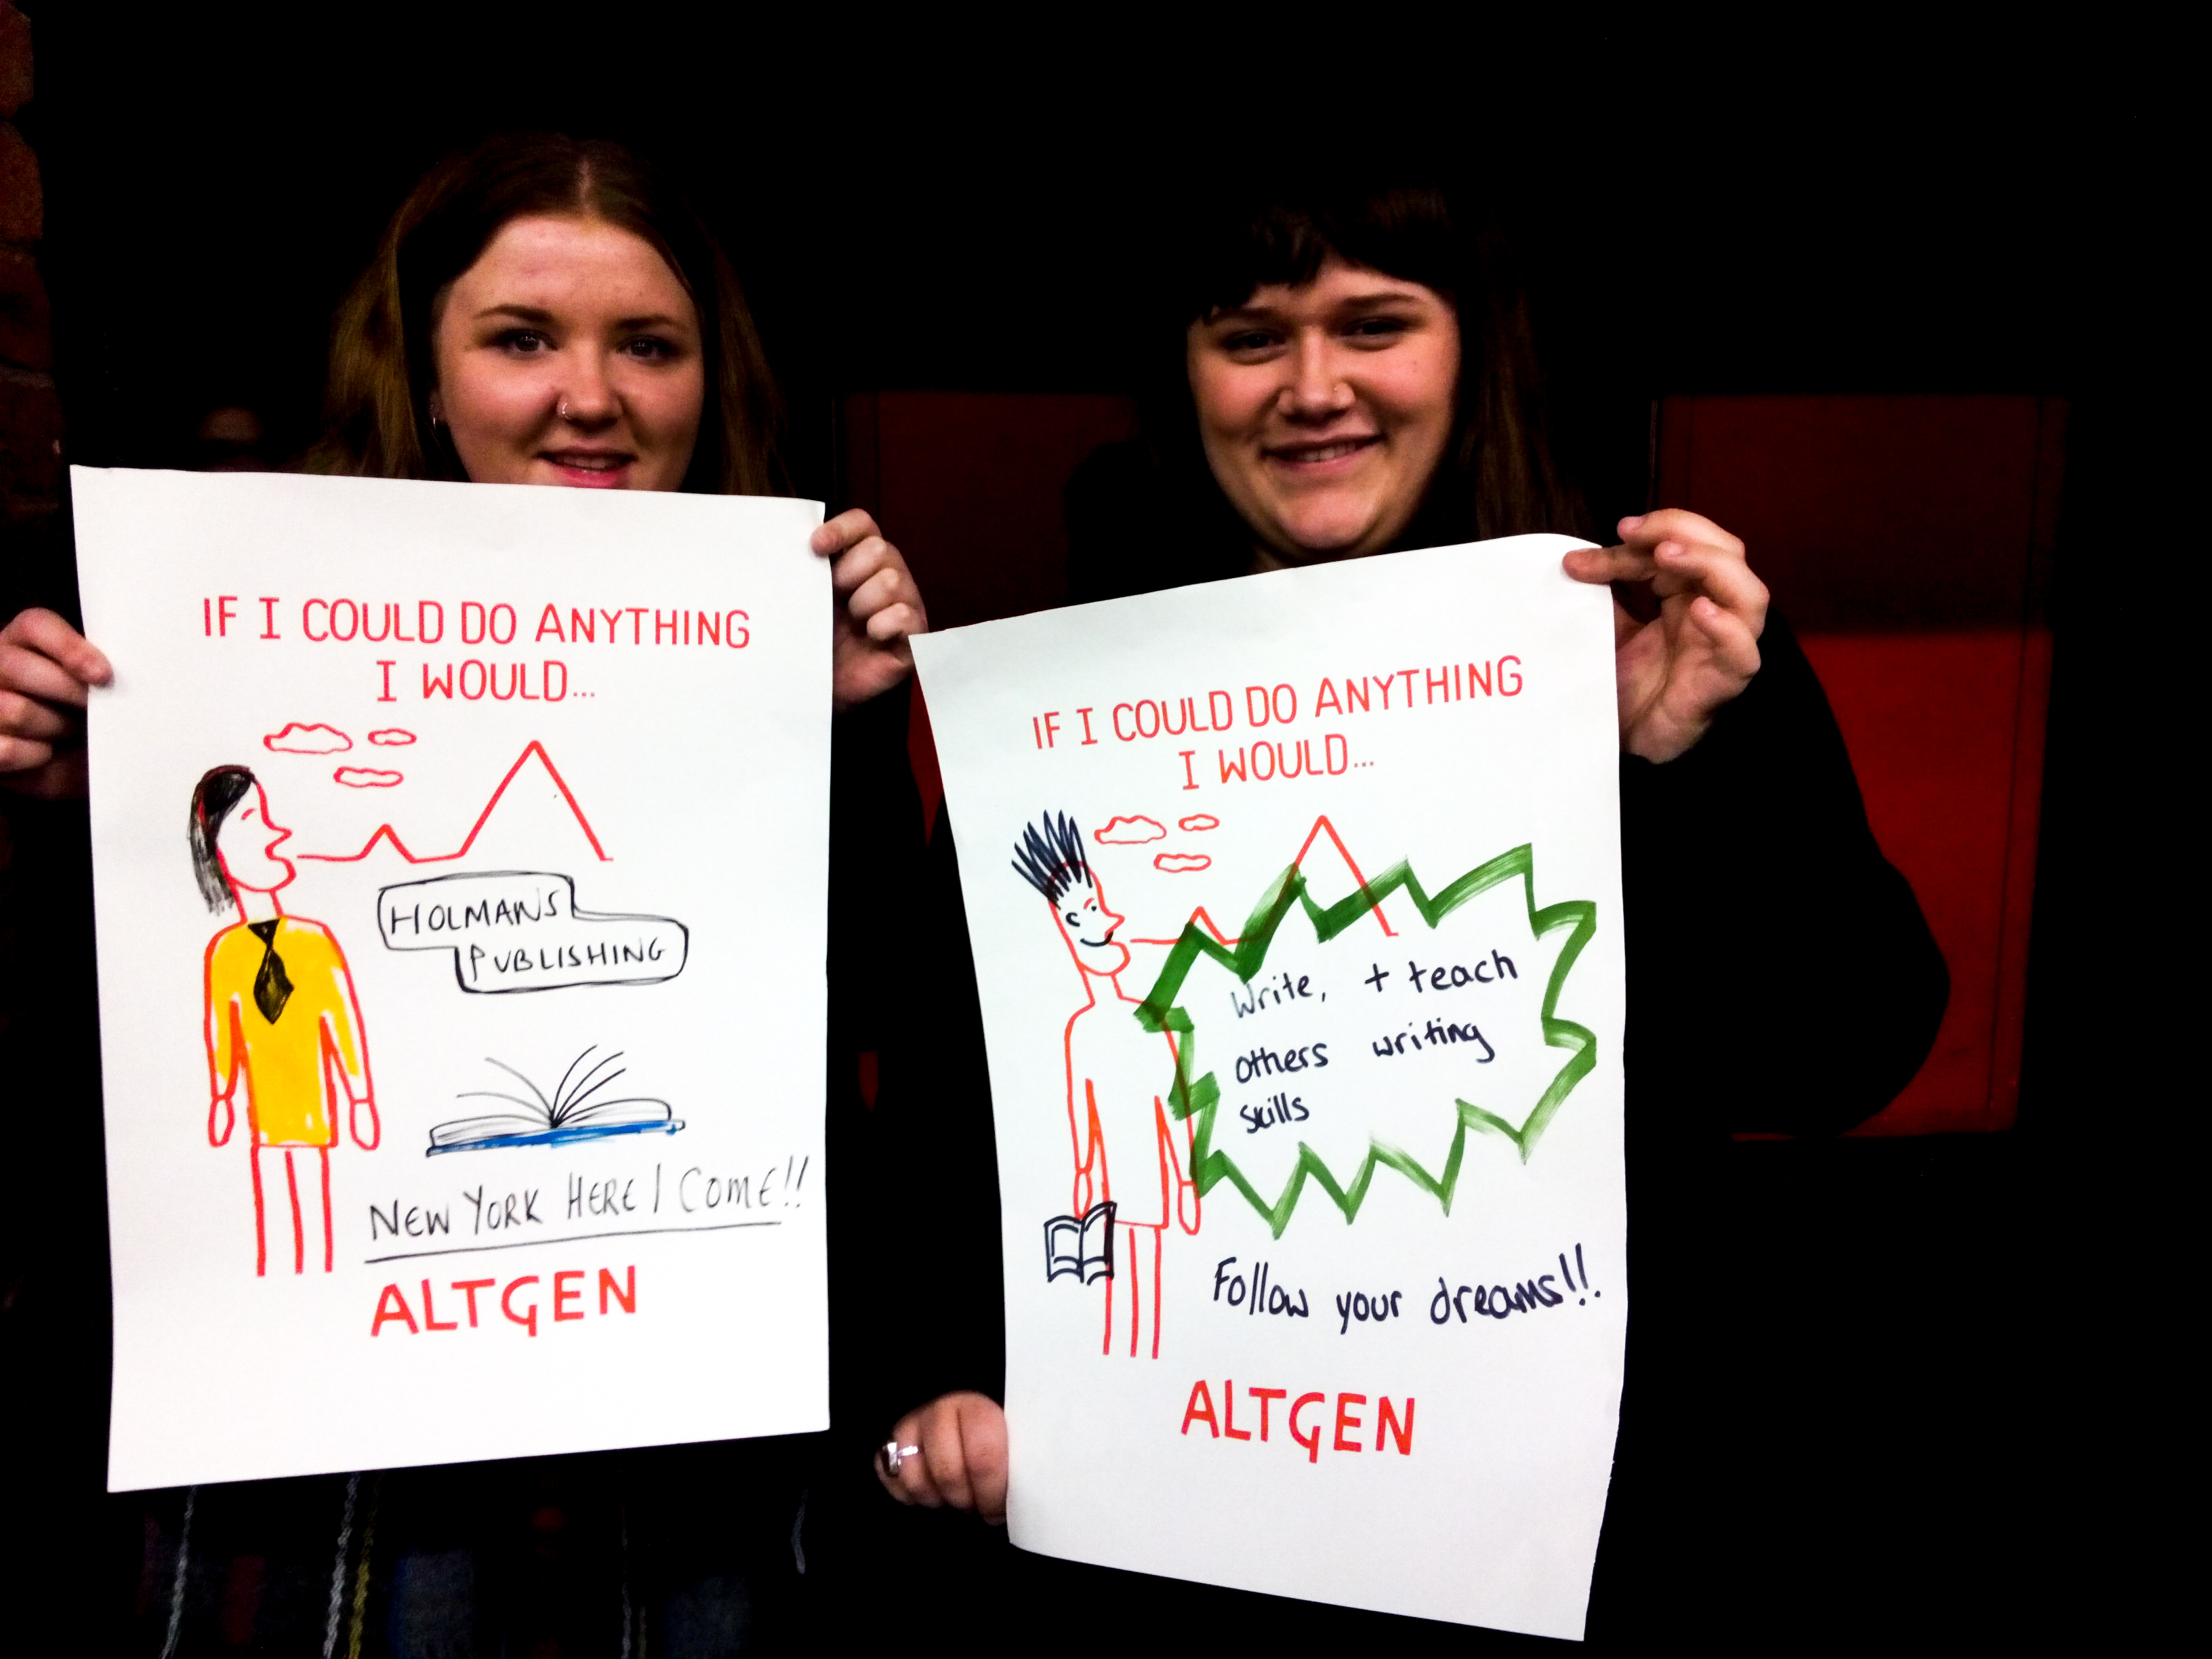 IF I COULD DO ANYTHING
I WOULD...
HOLMANS
PUBLISHING
NEW YORK HERE I COME!!
ALTGEN
IF I COULD DO ANYTHING
I WOULD...
Write, + teach
others writing
skills
Follow your dreams!!.
ALTGEN